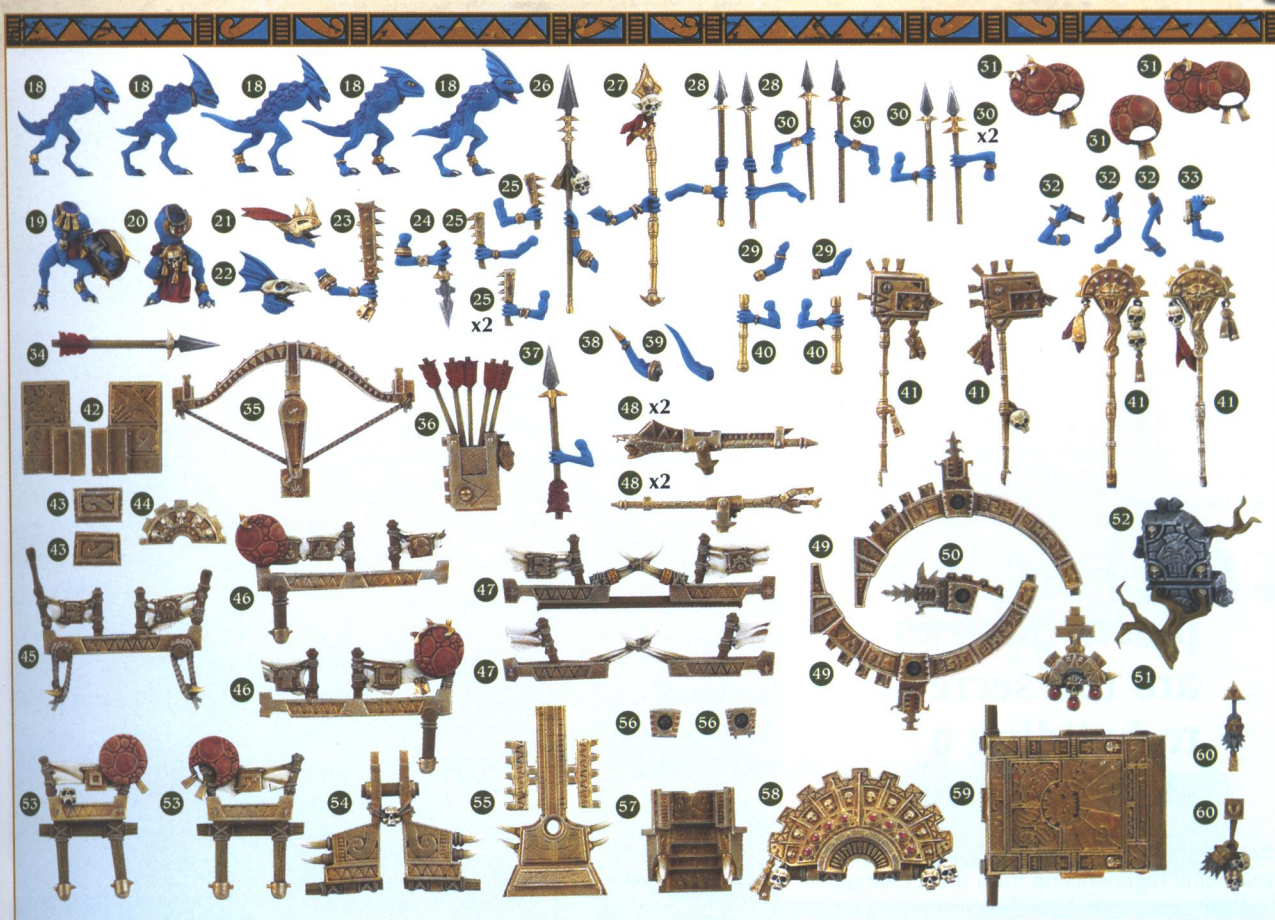 18 18 18 18 18 26 27 28 28 30 30 30 30 x2 31 31 31
19 20 21 22 23 24 25 25 25 x2 29 29 32 32 32 33
34 35 36 37 38 39 40 40 41 41 41 41
42 43 43 44 45 46 46 47 47 48 x2 48 x2 49 49 50 51 52
53 53 54 55 56 56 57 58 59 60 60